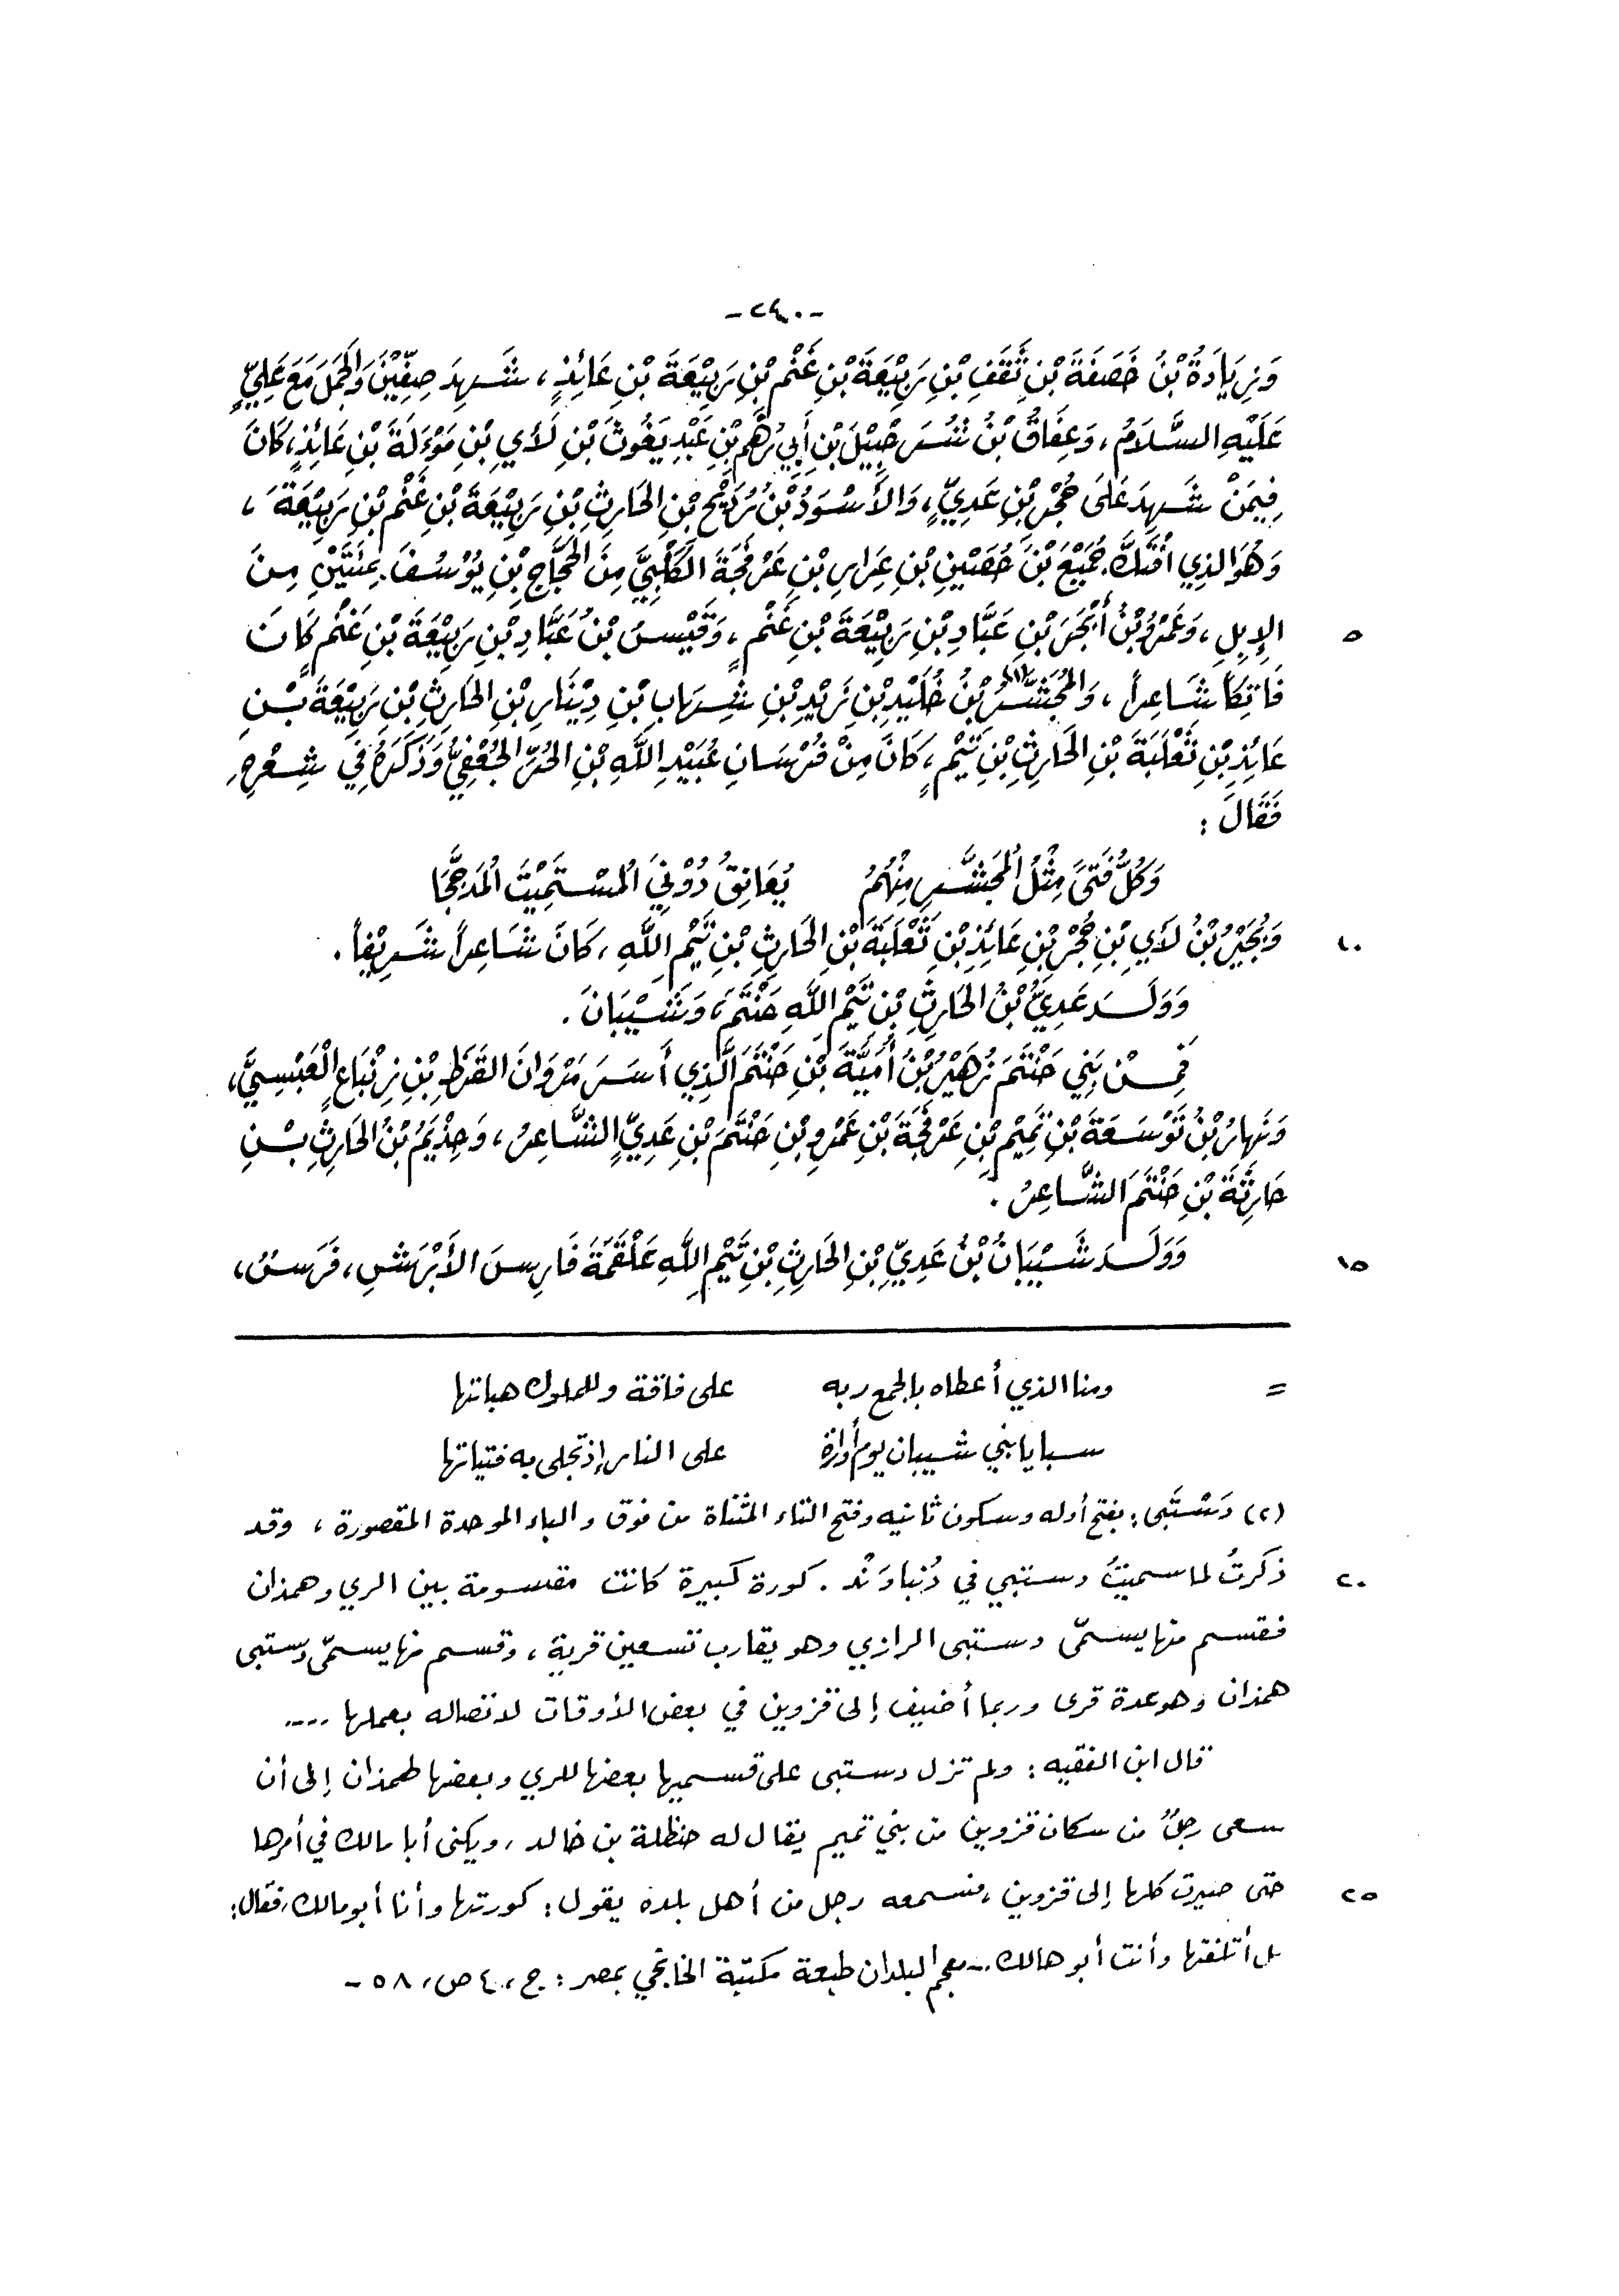 -٢٤٠-
وَزِيَادَةُ بْنُ خَصَفَةَ بْنِ ثَقَفِ بْنِ رَبِيْعَةَ بْنِ غَنْمِ بْنِ رَبِيْعَةَ بْنِ عَائِذٍ، شَهِدَ صِفِّيْنَ وَالجَمَلَ مَعَ عَلِيٍّ
عَلَيْهِ السَّلَامُ، وَعِفَاقُ بْنُ شُرَحْبِيْلَ بْنِ أَبِي رُهْمِ بْنِ عَبْدِ يَغُوثَ بْنِ لَأْيِ بْنِ مَوْءَلَةَ بْنِ عَائِذٍ، كَانَ
فِيمَنْ شَهِدَ عَلَى حُجْرِ بْنِ عَدِيٍّ، وَالأَسْوَدُ بْنُ رُدَيْحِ بْنِ الحَارِثِ بْنِ رَبِيْعَةَ بْنِ غَنْمِ بْنِ رَبِيْعَةَ،
وَهُوَ الذِي افْتَكَّ جُمَيْعَ بْنَ حُصَيْنِ بْنِ عِرَارِ بْنِ عَرْفَجَةَ الكَلْبِيَّ مِنَ الحَجَّاجِ بْنِ يُوْسُفَ بِمِئَتَيْنِ مِنَ
الإِبِلِ، وَعَمْرُو بْنُ أَبْجَرَ بْنِ عَبَّادِ بْنِ رَبِيْعَةَ بْنِ غَنْمٍ، وَقَيْسُ بْنُ عَبَّادِ بْنِ رَبِيْعَةَ بْنِ غَنْمٍ كَانَ
٥
فَاتِكاً شَاعِراً، وَالمُجَشَّرُ بْنُ خُلَيْدِ بْنِ زَيْدِ بْنِ شِهَابِ بْنِ دِيْنَارِ بْنِ الحَارِثِ بْنِ رَبِيْعَةَ بْنِ
عَائِذِ بْنِ ثَعْلَبَةَ بْنِ الحَارِثِ بْنِ تَيْمٍ، كَانَ مِنْ فُرْسَانِ عُبَيْدِ اللَّهِ بْنِ الحُرِّ الجُعْفِيِّ وَذَكَرَهُ فِي شِعْرِهِ
فَقَالَ:
وَكُلُّ فَتَىً مِثْلُ المُجَشَّرِ مِنْهُمُ يُعَانِقُ دُوْنِيَ المُسْتَمِيْتَ المُدَجَّجَا
وَبُجَيْرُ بْنُ لَأْيِ بْنِ حُجْرِ بْنِ عَائِذِ بْنِ ثَعْلَبَةَ بْنِ الحَارِثِ بْنِ تَيْمِ اللَّهِ، كَانَ شَاعِراً شَرِيْفاً.
١٠
وَوَلَدَ عَدِيُّ بْنُ الحَارِثِ بْنِ تَيْمِ اللَّهِ حَنْتَمَ، وَشَيْبَانَ.
فَمِنْ بَنِي حَنْتَمَ زُهَيْرُ بْنُ أُمَيَّةَ بْنِ حَنْتَمَ الَّذِي أَسَرَ مَرْوَانَ القَرَظِ بْنِ زِنْبَاعٍ الْعَبْسِيَّ،
وَنَهَارُ بْنُ تَوْسَعَةَ بْنِ تَمِيْمِ بْنِ عَرْفَجَةَ بْنِ عَمْرِو بْنِ حَنْتَمَ بْنِ عَدِيٍّ الشَّاعِرُ، وَحِذْيَمُ بْنُ الحَارِثِ بْنِ
حَارِثَةَ بْنِ حَنْتَمَ الشَّاعِرُ.
وَوَلَدَ شَيْبَانُ بْنُ عَدِيِّ بْنِ الحَارِثِ بْنِ تَيْمِ اللَّهِ عَلْقَمَةَ فَارِسَ الأَبْرَشِ، فَرَسٌ،
١٥
= ومنا الذي أعطاه بالجمع ربه على فاقة وللملوك هباتها
سبايا بني شيبان يوم أوارة على النار إذ تجلى به فتياتها
(٢) دَسْتَبَى: بفتح أوله وسكون ثانيه وفتح التاء المثناة من فوق والباء الموحدة المقصورة، وقد
ذكرتُ لما سميتْ دستبى في دُنْباوَنْد. كورة كبيرة كانت مقسومة بين الري وهمذان
٢٠
فقسم منها يسمّى دستبى الرازي وهو يقارب تسعين قرية، وقسم منها يسمّى دستبى
همذان وهو عدة قرى وربما أضيف إلى قزوين في بعض الأوقات لاتصاله بعملها ....
قال ابن الفقيه: ولم تزل دستبى على قسميها بعضها للري وبعضها لهمذان إلى أن
سعى رجلٌ من سكان قزوين من بني تميم يقال له حنظلة بن خالد، ويكنى أبا مالك في أمرها
حتى صيرت كلها إلى قزوين، فسمعه رجل من أهل بلده يقول: كورتها وأنا أبو مالك، فقال:
٢٥
بل أتلفتها وأنت أبو هالك.. معجم البلدان طبعة مكتبة الخانجي بمصر: ج، ٤ ص، ٥٨ -